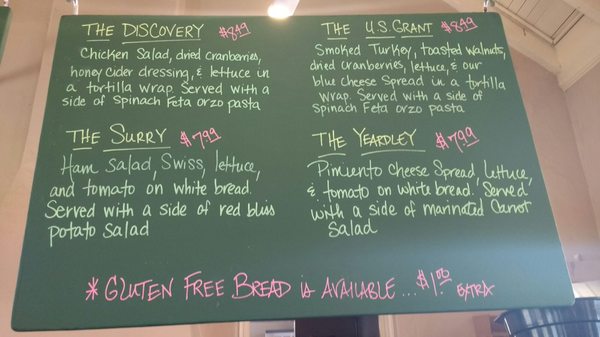 THE DISCOVERY $8.49
Chicken Salad, dried cranberries,
honey cider dressing, & lettuce in
a tortilla wrap. Served with a
side of Spinach Feta orzo pasta
THE U.S. GRANT $8.49
Smoked Turkey, toasted walnuts,
dried cranberries, lettuce, & our
blue cheese Spread in a tortilla
wrap. Served with a side of
Spinach Feta orzo pasta
THE SURRY $7.99
Ham Salad, Swiss, lettuce,
and tomato on white bread.
Served with a side of red bliss
potato Salad
THE YEARDLEY $7.99
Pimiento Cheese Spread, lettuce,
& tomato on white bread. Served
with a side of marinated Carrot
Salad
* GLUTEN FREE BREAD is AVAILABLE... $1.00 EXTRA